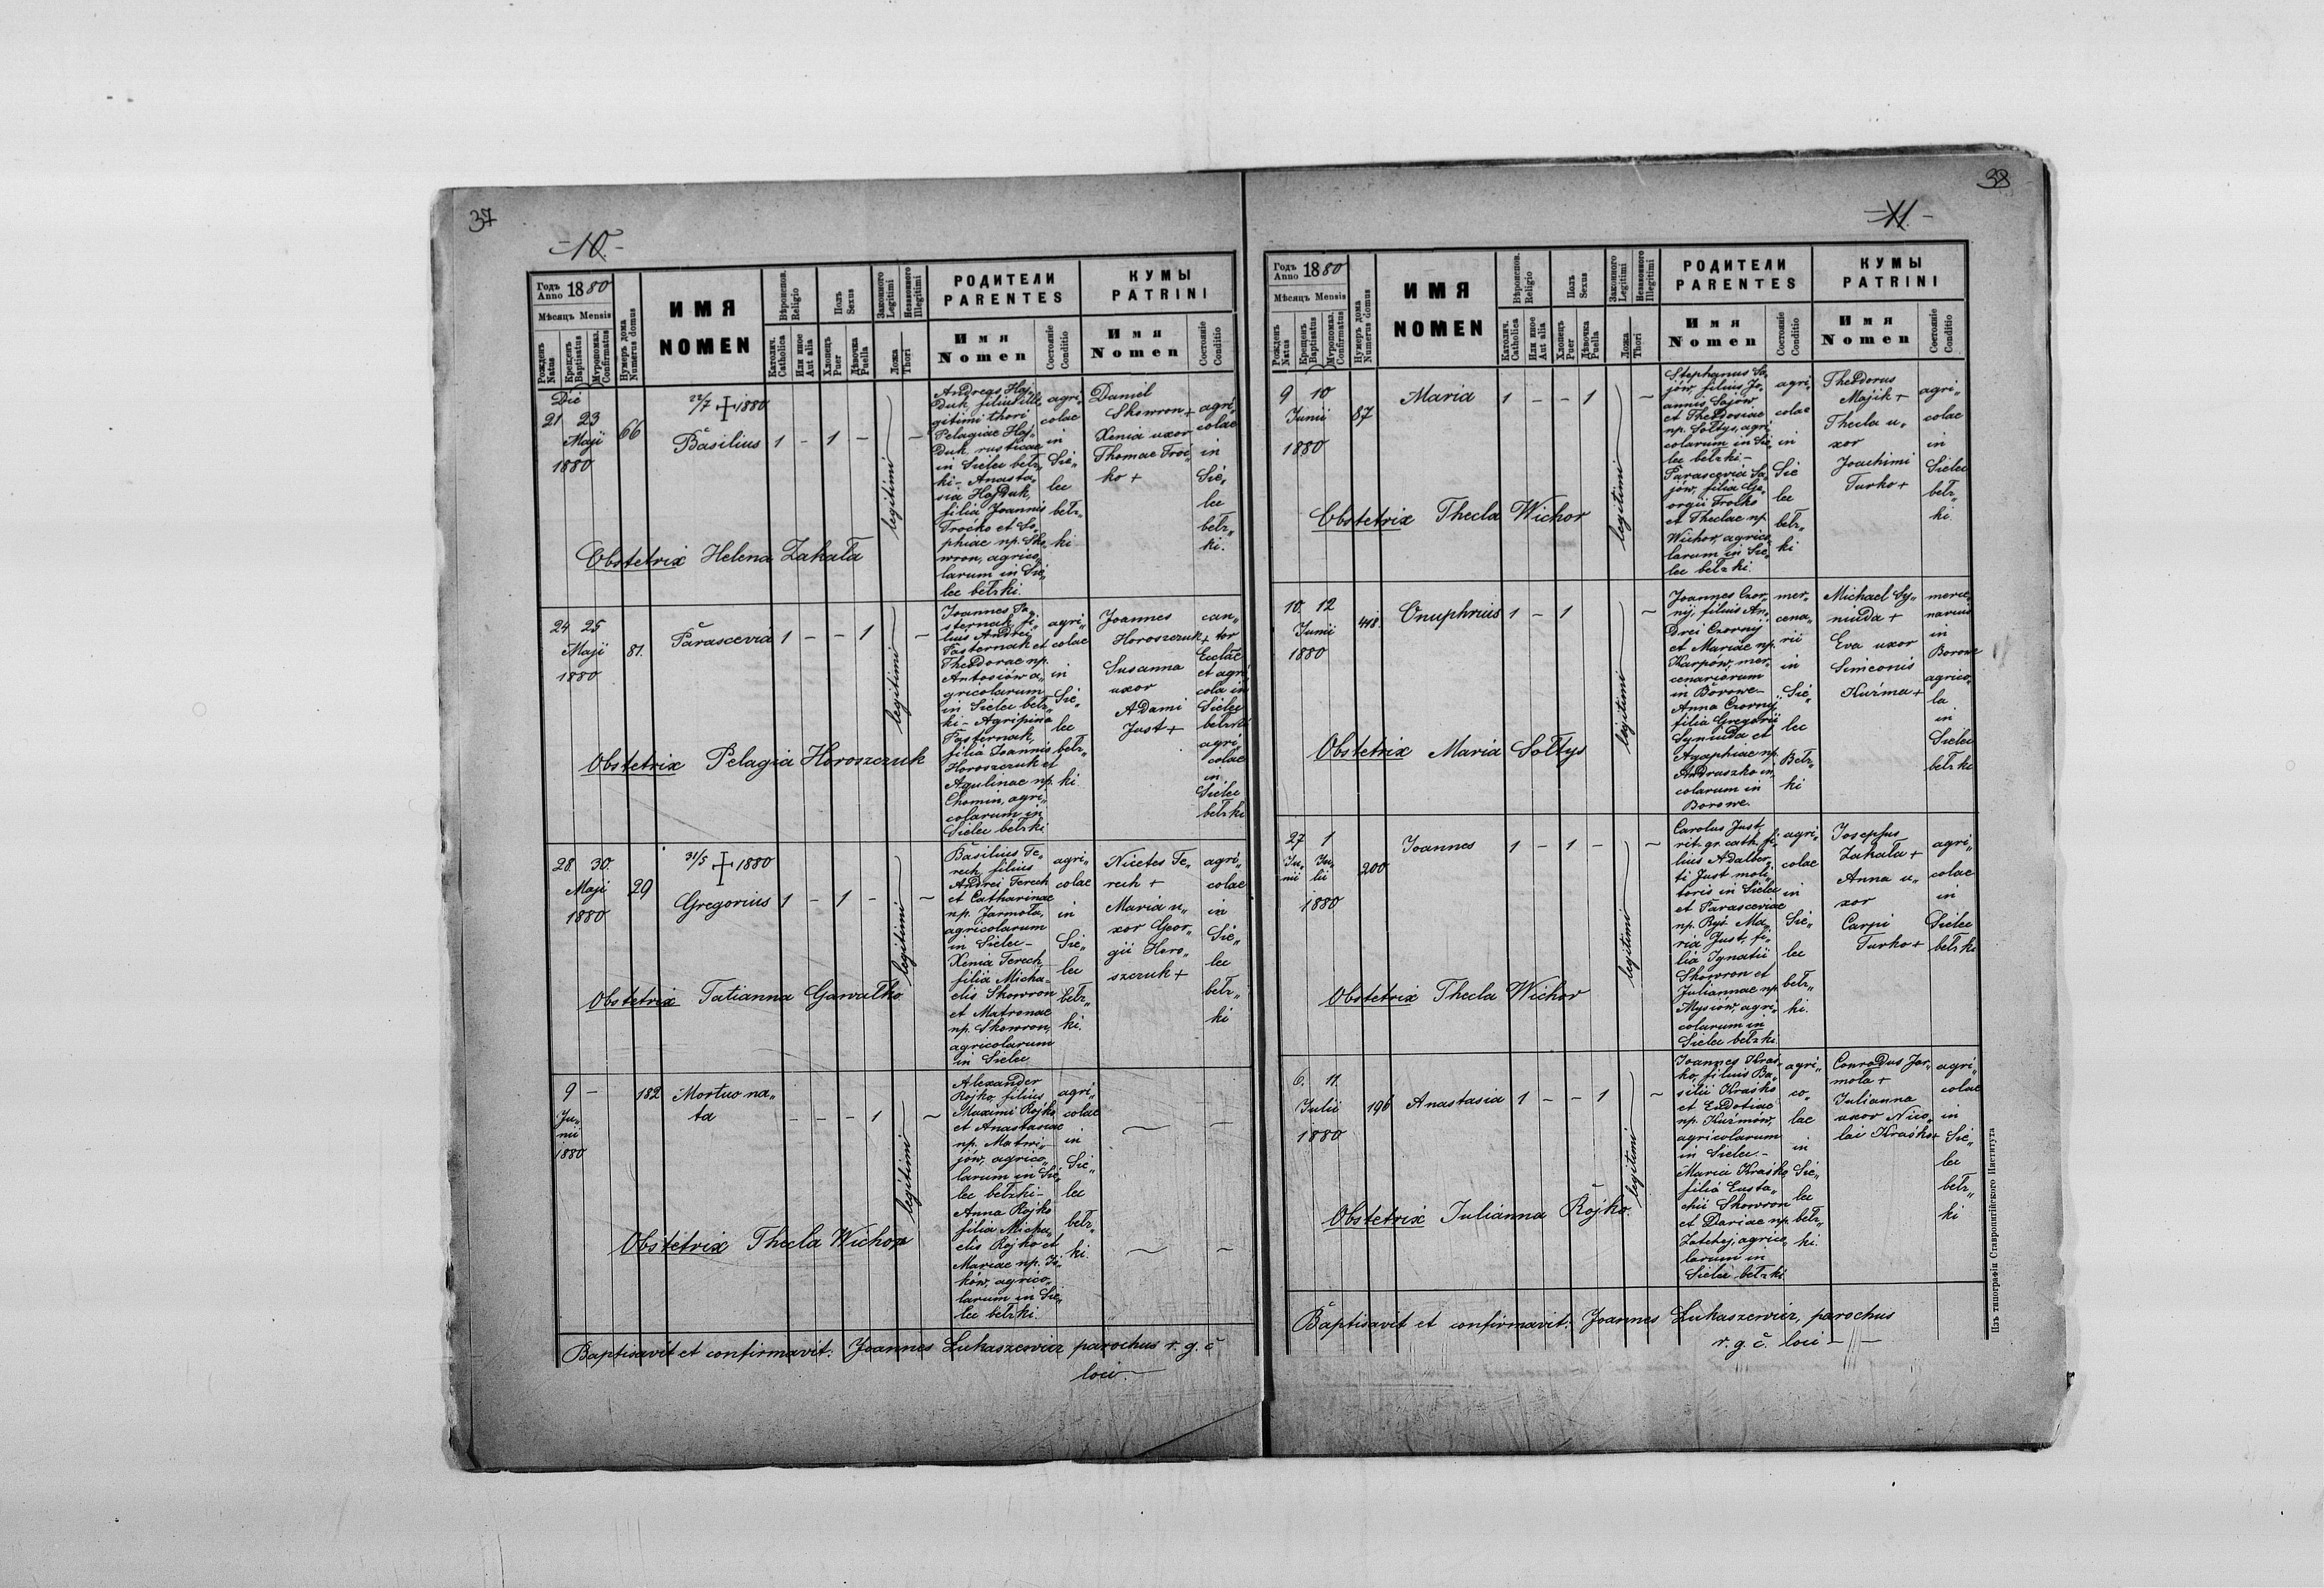 37
-10-
Годъ Anno 1880
Мѣсяць Mensis
Рожденъ Natus
Крещенъ Baptisatus
Мѵропомаз. Confirmatus
Нумеръ дома Numerus domus
ИМЯ
NOMEN
Вѣроиспов. Religio
Католич. Catholica
Или иное Aut alia
Полъ Sexus
Хлопецъ Puer
Дѣвочка Puella
Законного Legitimi
Незаконного Illegitimi
Ложа Thori
РОДИТЕЛИ
PARENTES
Имя
Nomen
Состояніе Conditio
КУМЫ
PATRINI
Имя
Nomen
Состояніе Conditio
Die
21 23
Maji
1880
66
22/7 + 1880
Basilius
1 - 1 -
legitimi
Andreas Haj„
duk filius ille„
gitimi thori
Pelagiae Haj„
duk, rusticae
in Sielec bełz„
ki - Anasta„
sia Hajduk,
filia Joannis
Troćko et So„
phiae np. Sko„
wron, agrico„
larum in Sie„
lec bełzki.
agri„
colae
in
Sie„
lec
bełz„
ki.
Daniel
Skowron +
Xenia uxor
Thomae Troć„
ko +
agri„
colae
in
Sie„
lec
bełz„
ki.
Obstetrix Helena Zakała
24 25
Maji
1880
81.
Parascevia
1 - - 1
legitimi
Joannes Pa„
sternak, fi„
lius Andrei
Pasternak et
Theodorae np.
Antosiów a„
gricolarum
in Sielec bełz„
ki - Agripina
Pasternak,
filia Joannis
Horoszczuk et
Aqulinae np.
Chomin, agri„
colarum in
Sielec bełzki
agri„
colae
in
Sie„
lec
bełz„
ki.
Joannes
Horoszczuk +
Susanna
uxor
Adami
Just +
can„
tor
Ecclae
et agri„
cola in
Sielec
bełzki
agri„
colae
in
Sielec
bełzki
Obstetrix Pelagia Horoszczuk
28. 30.
Maji
1880
29
31/5 + 1880
Gregorius
1 - 1 -
legitimi
Basilius Te„
rech, filius
Andrei Terech
et Catharinae
np. Jarmoła,
agricolarum
in Sielec -
Xenia Terech
filia Micha„
elis Skowron
et Matronae
np. Skowron,
agricolarum
in Sielec
agri„
colae
in
Sie„
lec
bełz„
ki.
Nicetes Te„
rech +
Maria u„
xor Geor„
gii Horo„
szczuk +
agri„
colae
in
Sie„
lec
bełz„
ki
Obstetrix Tatianna Gawałko
9 -
Ju„
nii
1880
182
Mortuo na„
ta
- - - 1
legitimi
Alexander
Rojko, filius
Maximi Rojko
et Anastasiae
np. Matwi„
jów, agrico„
larum in Sie„
lec bełzki -
Anna Rojko
filia Micha„
elis Rojko et
Mariae np.
ków, agrico„
larum in Sie„
lec bełzki.
agri„
colae
in
Sie„
lec
bełz„
ki.
Obstetrix Thecla Wichor
Baptisavit et confirmavit: Joannes Łukaszewicz parochus r. g. c
loci.
38
-11-
Годъ Anno 1880
Мѣсяць Mensis
Рожденъ Natus
Крещенъ Baptisatus
Мѵропомаз. Confirmatus
Нумеръ дома Numerus domus
ИМЯ
NOMEN
Вѣроиспов. Religio
Католич. Catholica
Или иное Aut alia
Полъ Sexus
Хлопецъ Puer
Дѣвочка Puella
Законного Legitimi
Незаконного Illegitimi
Ложа Thori
РОДИТЕЛИ
PARENTES
Имя
Nomen
Состояніе Conditio
КУМЫ
PATRINI
Имя
Nomen
Состояніе Conditio
9 10
Junii
1880
87
Maria
1 - - 1
legitimi
Stephanus Sa„
jów, filius Jo„
annis Sajów
et Theodosiae
np. Sołtys, agri„
colarum in Sie„
lec bełzki -
Parascevia Sa„
jów, filia Ge„
orgii Troćko
et Theclae np
Wichor, agrico„
larum in Sie„
lec bełzki.
agri„
colae
in
Sie
lec
bełz„
ki
Theodorus
Majik +
Thecla u„
xor
Joachimi
Turko +
agri„
colae
in
Sielec
bełz„
ki.
Obstetrix Thecla Wichor
10. 12
Junii
1880
418.
Onuphrius
1 - 1
legitimi
Joannes Czor„
nyj, filius An„
drei Czornyj
et Mariae np.
Karpów, mer„
cenariorum
in Borowe -
Anna Czornyj
filia Gregorii
Syniuda et
Agaphiae np.
Andruszko in„
colarum in
Borowe.
mer„
cena„
rii
in
Sie„
lec
Bełz„
ki
Michael Sy„
niuda +
Eva uxor
Simeonis
Kuźma +
merce„
narius
in
Borowe
agrico„
la
in
Sielec
bełzki
Obstetrix Maria Sołtys
27 1
Ju„ Ju„
nii lii
1880
200
Joannes
1 - 1 -
legitimi
Carolus Just,
rit. gr. cath. fi„
lius Adalber„
ti Just moli„
toris in Sielec
et Parasceviae
np. Byś Ma„
ria Just, fi„
lia Ignatii
Skowron et
Juliannae np
Mysiów, agri„
colarum in
Sielec bełzki.
agri„
colae
in
Sie„
lec
bełz„
ki.
Josephus
Zakała +
Anna u„
xor
Carpi
Turko +
agri„
colae
in
Sielec
bełzki
Obstetrix Thecla Wichor
6. 11.
Julii
1880
196
Anastasia
1 - - 1
legitimi
Joannes Kraś„
ko, filius Ba„
silii Kraśko
et Eudotiae
np. Kuźmów,
agricolarum
in Sielec -
Maria Kraśko
filia Eusta„
chii Skowron
et Dariae np.
Zatchej, agrico„
larum in
Sielec bełzki
agri„
co„
lae
in
Sie„
lec
bełz„
ki.
Conradus Jar„
moła +
Julianna
uxor Nico„
lai Kraśko +
agri„
colae
in
Sie„
lec
bełz„
ki
Obstetrix Julianna Rojko.
Baptisavit et confirmavit: Joannes Łukaszewicz, parochus
r. g. c. loci -
Изъ типографіи Ставропигійского Института